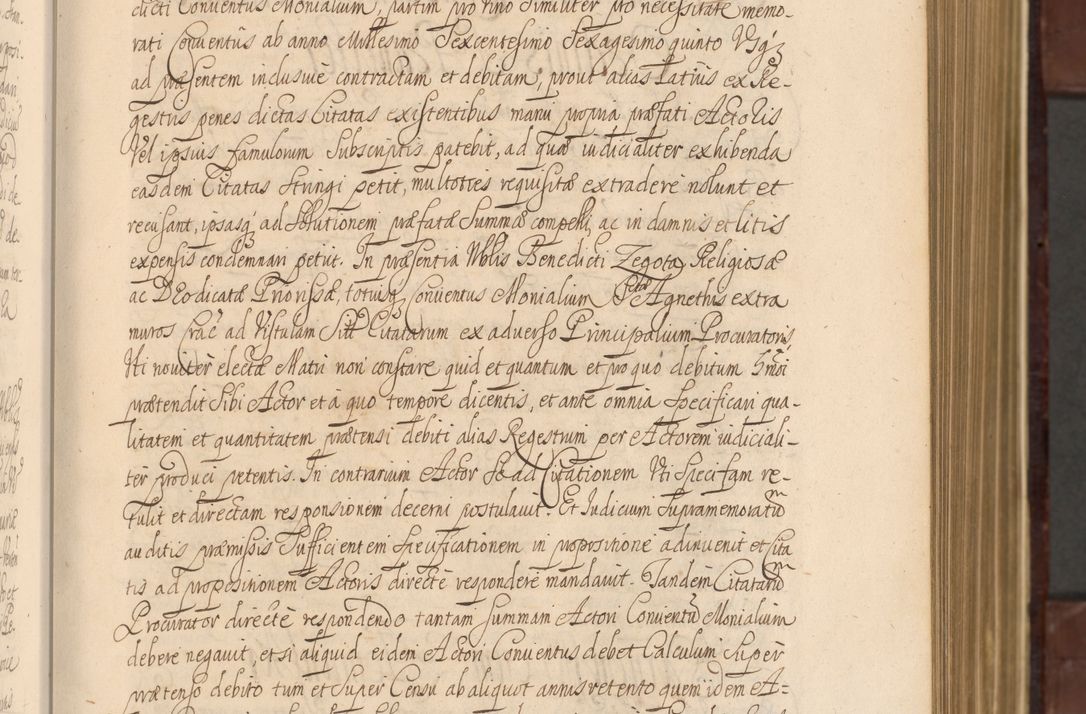 dicti Conventus Monialium, partim pro vino similiter pro necessitate memo-
rati Conventus ab anno Millesimo Sexcentesimo Sexagesimo quinto Usq
ad præsentem inclusive contractam et debitam, prout alias latius ex Re-
gestris penes dictas Citatas existentibus manu propria præfati Actoris
Vel ipsius famulorum Subscriptis patebit, ad quæ iudicialiter exhibenda
easdem Citatas stringi petit, multoties requisitæ extradere nolunt et
recusant, ipsasq ad Solutionem præfatæ Summæ compelli, ac in damnis et litis
expensis condemnari petiit. In præsentia Nblis Benedicti Zegota Religiosæ
ac Deodicatæ Priorissæ, totiusq Conventus Monialium Sctæ Agnethis extra
muros Crac ad Vistulam Sitt Citatarum ex adverso Principalium Procuratoris,
Uti noviter electæ Matri non constare quid et quantum et pro quo debitum hmoi
prætendit Sibi Actor et a quo tempore dicentis, et ante omnia specificari qua-
litatem et quantitatem prætensi debiti alias Regestrum per Actorem iudiciali-
ter produci petentis. In contrarium Actor Se ad Citationem Uti specifam re-
tulit et directam responsionem decerni postulavit. Et Iudicium Supramemoratum
auditis præmissis Sufficientem specificationem in propositione adinvenit et Cita
tis ad propositionem Actoris directe respondere mandavit. Tandem Citatarum
Procurator directe respondendo tantam summam Actori Conventum Monialium
debere negavit, et si aliquid eidem Actori Conventus debet Calculum Super
prætenso debito tum et Super Censu ab aliquot annis retento quem idem A-